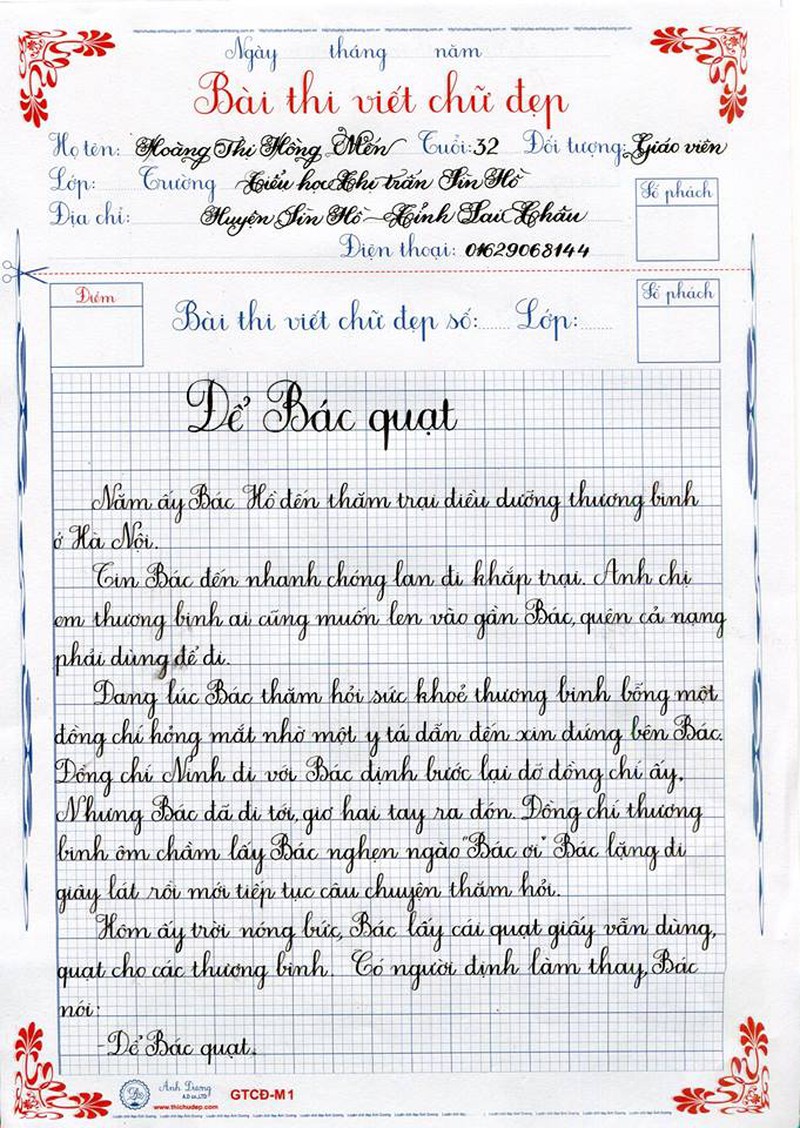 Ngày tháng năm
Bài thi viết chữ đẹp
Họ tên: Hoàng Thị Hồng Mến Tuổi: 32 Đối tượng: Giáo viên
Lớp: Trường Tiểu học Thị trấn Sìn Hồ
Số phách
Địa chỉ: Huyện Sìn Hồ - Tỉnh Lai Châu
Điện thoại: 01629068144
Điểm
Số phách
Bài thi viết chữ đẹp số:...... Lớp:......
Để Bác quạt
Năm ấy Bác Hồ đến thăm trại điều dưỡng thương binh
ở Hà Nội.
Tin Bác đến nhanh chóng lan đi khắp trại. Anh chị
em thương binh ai cũng muốn len vào gần Bác, quên cả nạng
phải dùng để đi.
Đang lúc Bác thăm hỏi sức khoẻ thương binh bỗng một
đồng chí hỏng mắt nhờ một y tá dẫn đến xin đứng bên Bác.
Đồng chí Ninh đi với Bác định bước lại đỡ đồng chí ấy.
Nhưng Bác đã đi tới, giơ hai tay ra đón. Đồng chí thương
binh ôm chầm lấy Bác nghẹn ngào "Bác ơi" Bác lặng đi
giây lát rồi mới tiếp tục câu chuyện thăm hỏi.
Hôm ấy trời nóng bức, Bác lấy cái quạt giấy vẫn dùng,
quạt cho các thương binh. Có người định làm thay, Bác
nói:
-Để Bác quạt.
Ánh Dương
A.D co.,LTD
www.thichudep.com
GTCĐ-M1